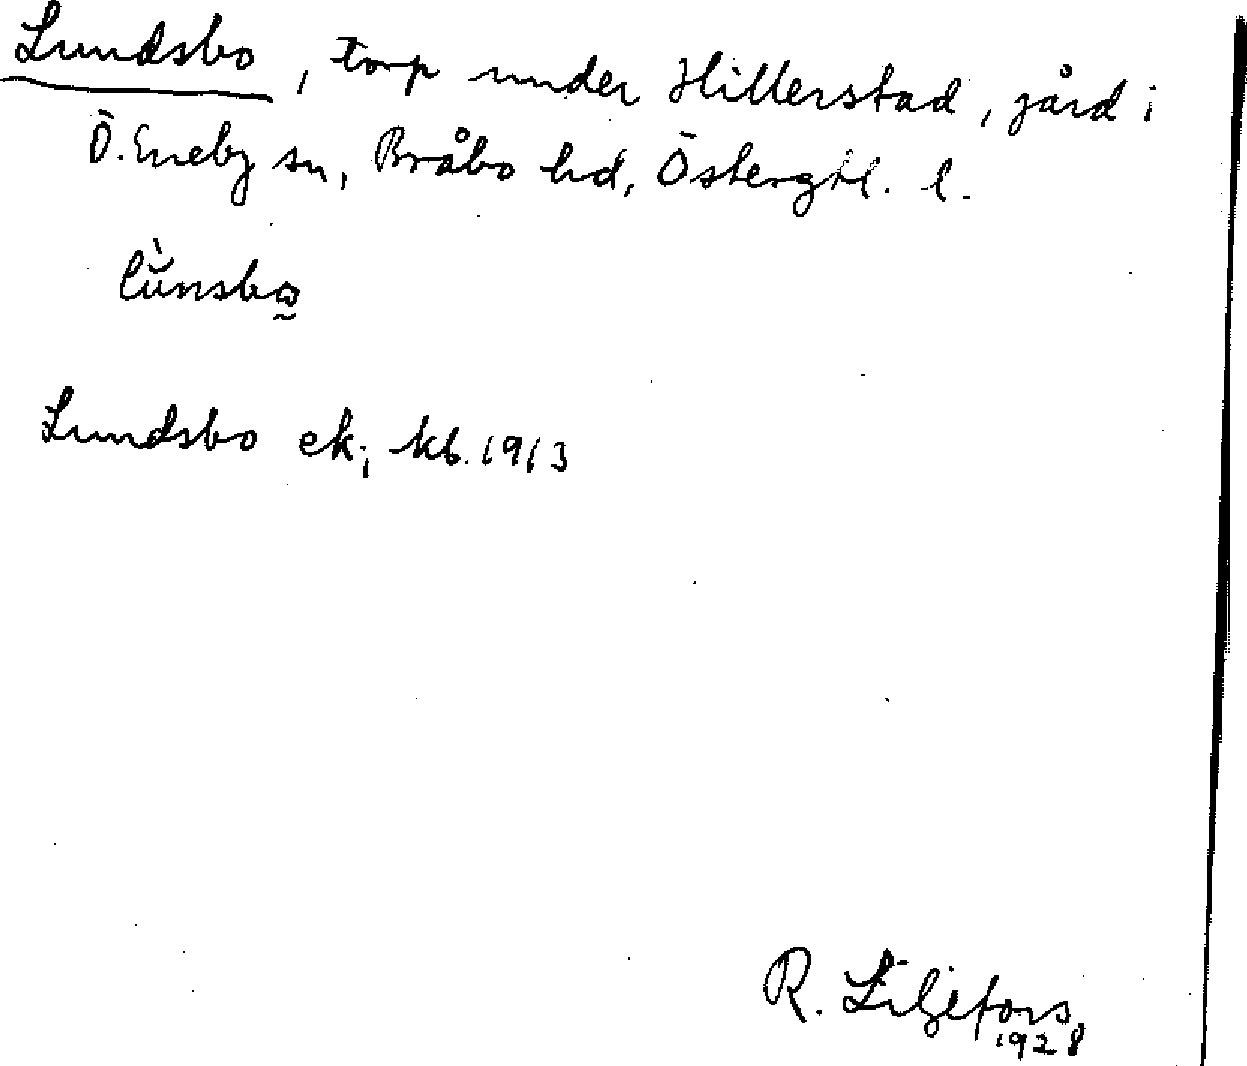 Lundsbo, torp under Hillerstad, gård i
Ö. Eneby sn, Bråbo hd, Östergtl. l.
lùnsbo
Lundsbo ek; kb. 1913
R. Liljefors
1928